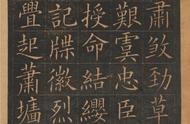 肅煞勁草
艱虞忠臣
授命結纓
記牒徽烈
舋起蕭墻